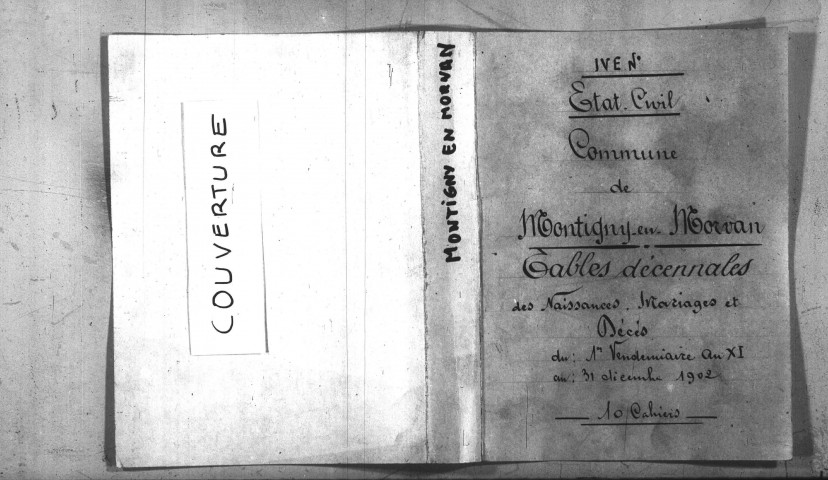 COUVERTURE
MONTIGNY EN MORVAN
IVE N°
Etat-Civil
Commune
de
Montigny-en-Morvan
Tables décennales
des Naissances. Mariages et
Décès
du: 1er Vendemiaire An XI
au: 31 décembre 1902
10 Cahiers